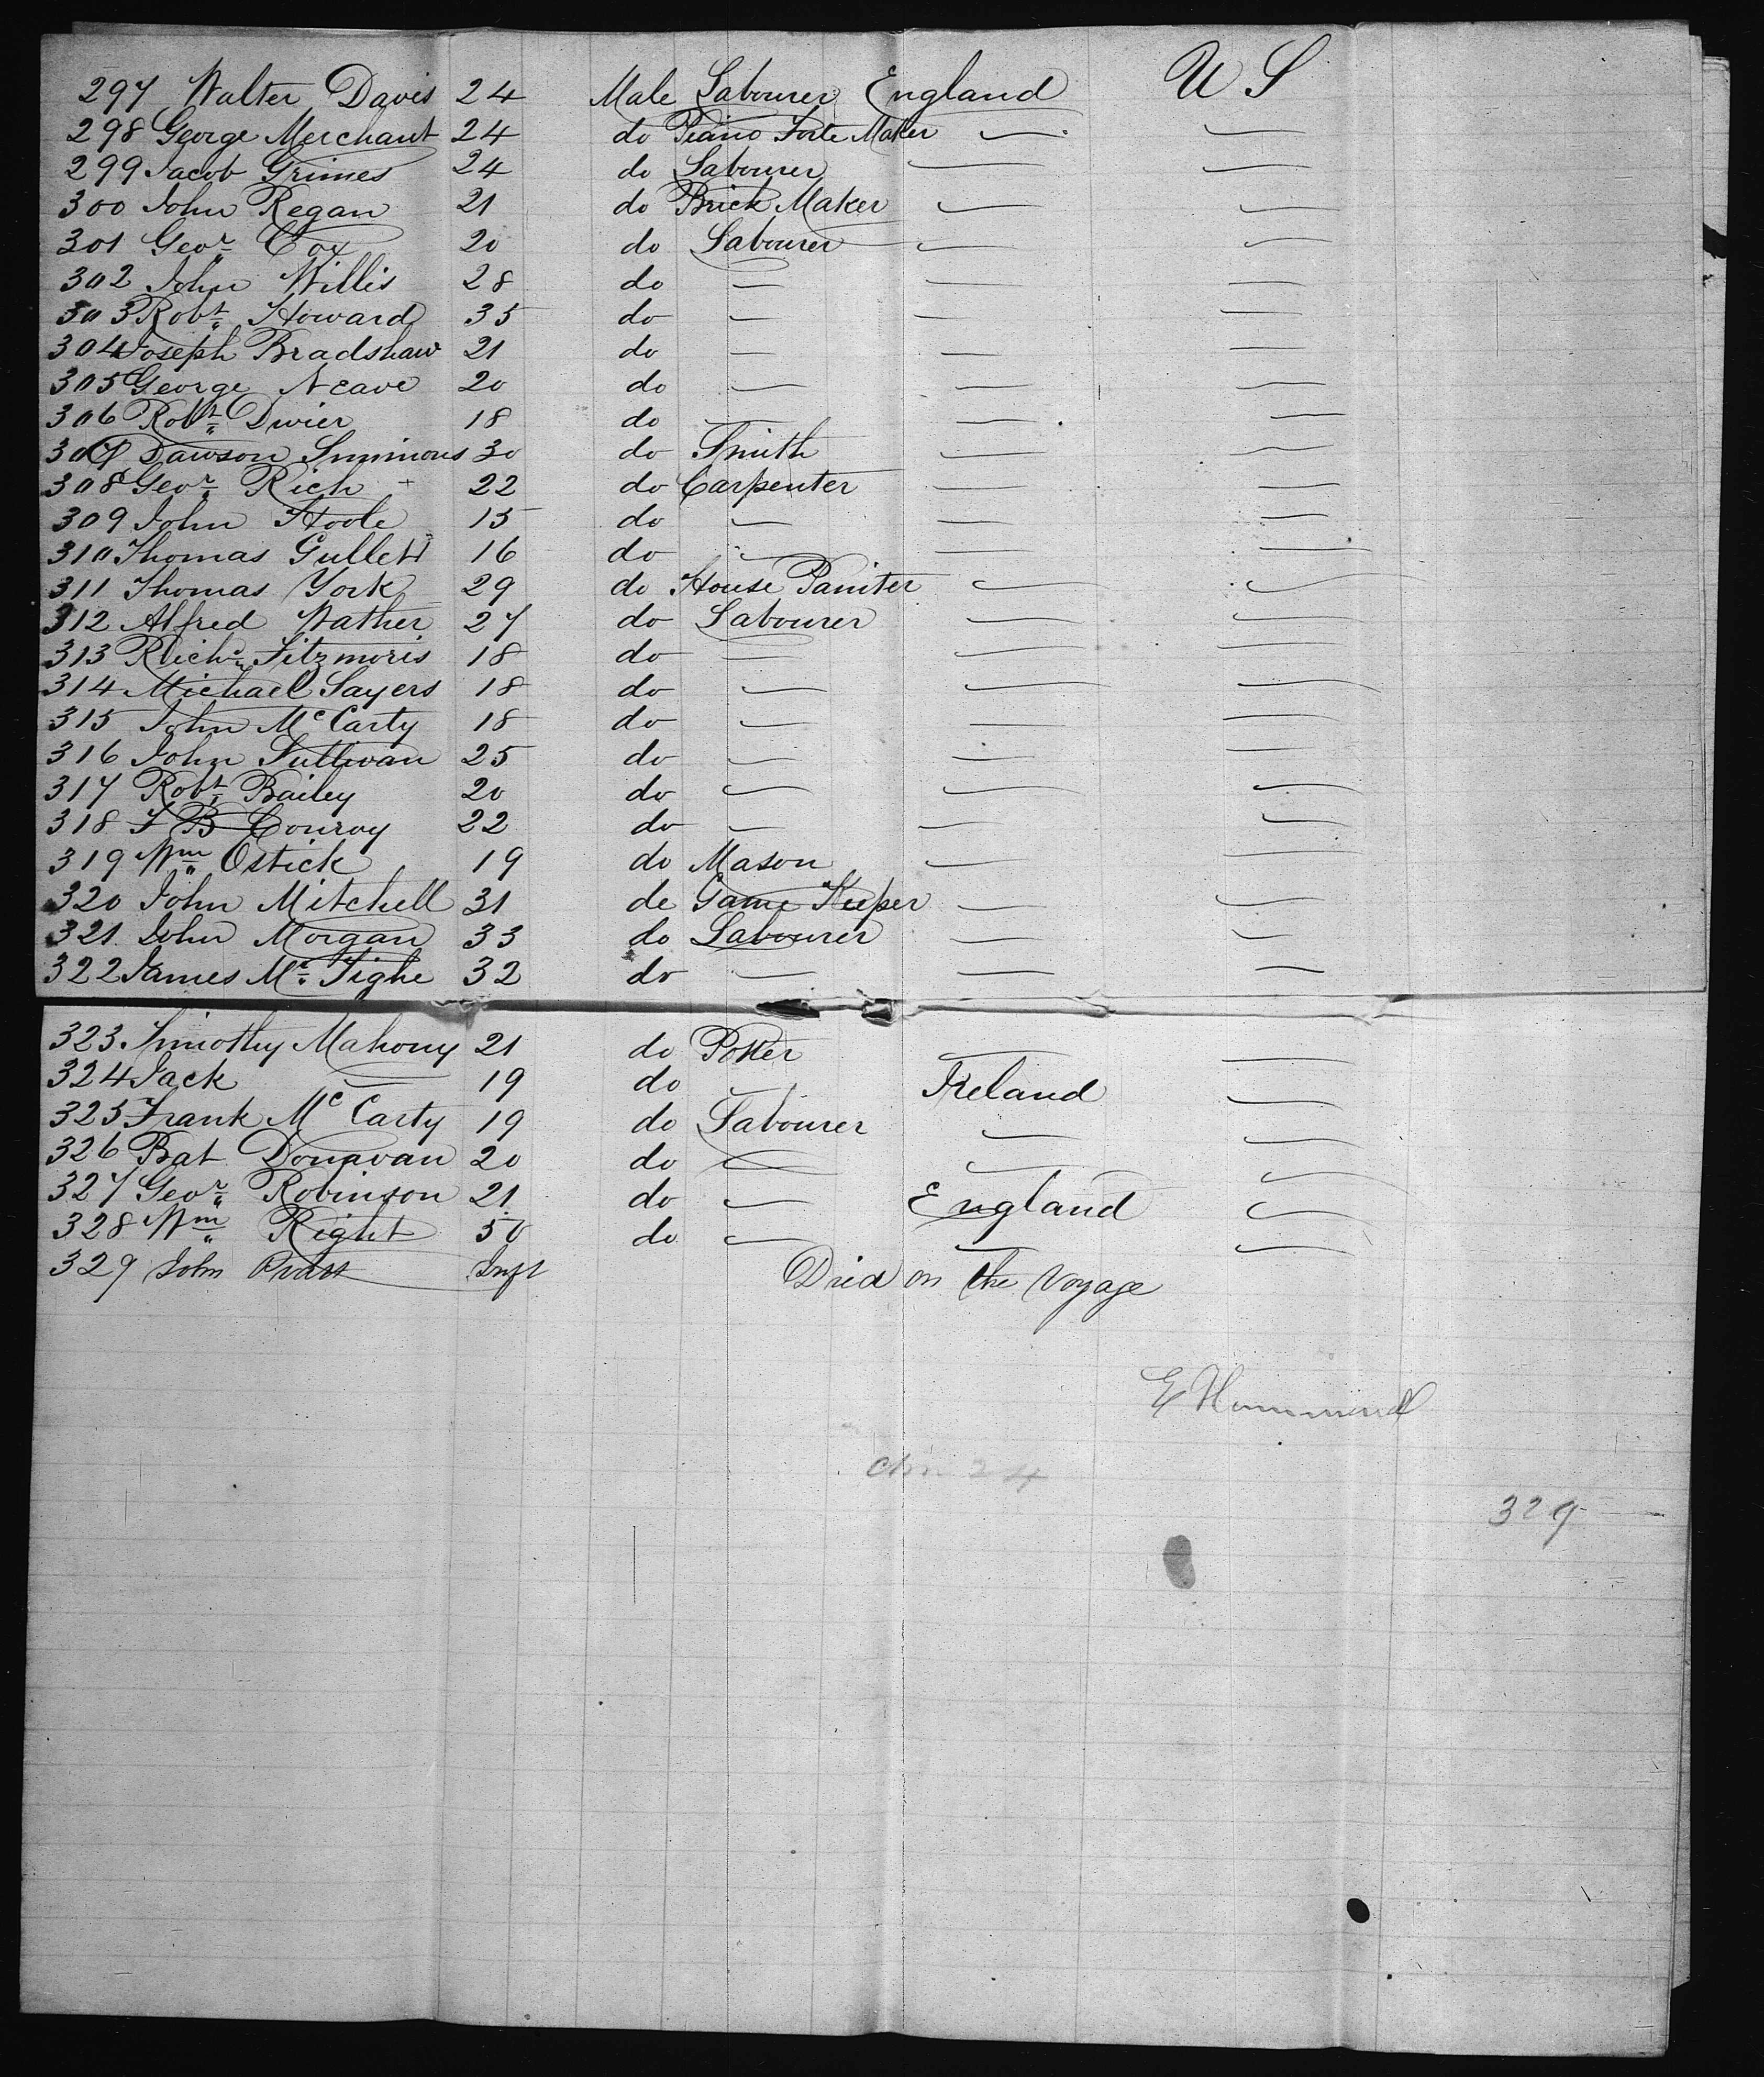 297 Walter Davis 24 Male Labourer England U S
298 George Merchant 24 do Piano Forte Maker — —
299 Jacob Grimes 24 do Labourer — —
300 John Regan 21 do Brick Maker — —
301 Geor Cox 20 do Labourer — —
302 John Willis 28 do — — —
303 Robt Howard 35 do — — —
304 Joseph Bradshaw 21 do — — —
305 George Neave 20 do — — —
306 Robt Dwier 18 do — — —
307 Dawson Simmons 30 do Smith — —
308 Geor Rich + 22 do Carpenter — —
309 John Hoole 15 do — — —
310 Thomas Gullett 16 do — — —
311 Thomas York 29 do House Painter — —
312 Alfred Wather 27 do Labourer — —
313 Richd Fitzmoris 18 do — — —
314 Michael Sayers 18 do — — —
315 John Mc Carty 18 do — — —
316 John Sullivan 25 do — — —
317 Robt Bailey 20 do — — —
318 J B Conroy 22 do — — —
319 Wm Ostick 19 do Mason — —
320 John Mitchell 31 do Game Keeper — —
321 John Morgan 33 do Labourer — —
322 James Mc Tighe 32 do — — —
323 Timothy Mahony 21 do Potter — —
324 Jack — 19 do — Ireland —
325 Frank Mc Carty 19 do Labourer — —
326 Bat Donavan 20 do — — —
327 Geor Robinson 21 do — England —
328 Wm Right 50 do — — —
329 John Inft Died on the Voyage
E Hammond
24
329